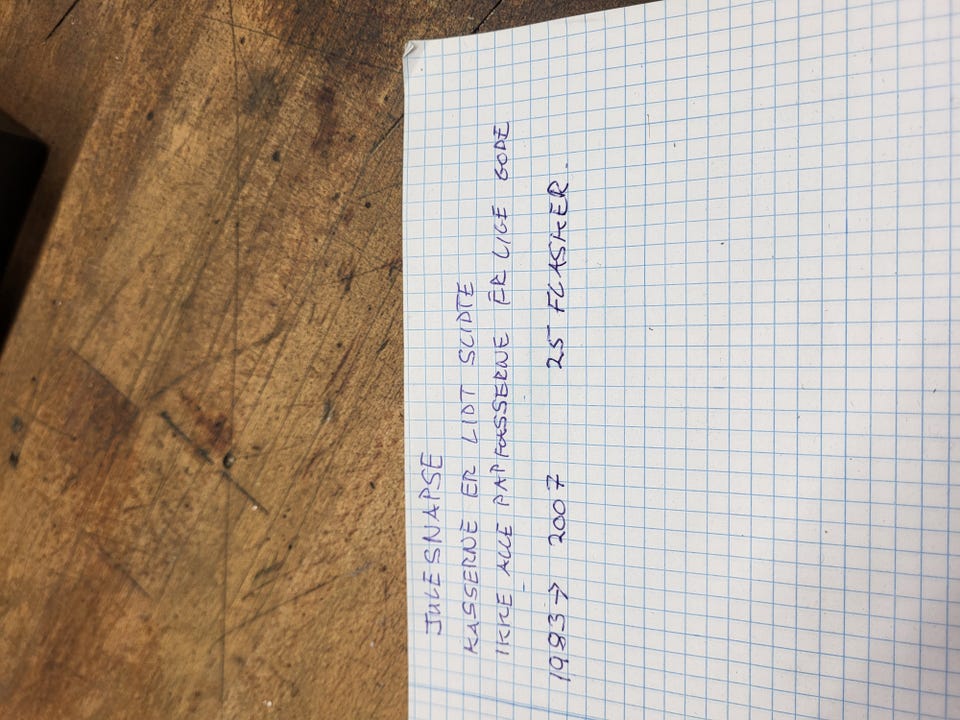 JULESNAPSE
KASSERNE ER LIDT SLIDTE
IKKE ALLE PAPKASSERNE ER LIGE GODE
1983 → 2007 25 FLASKER.